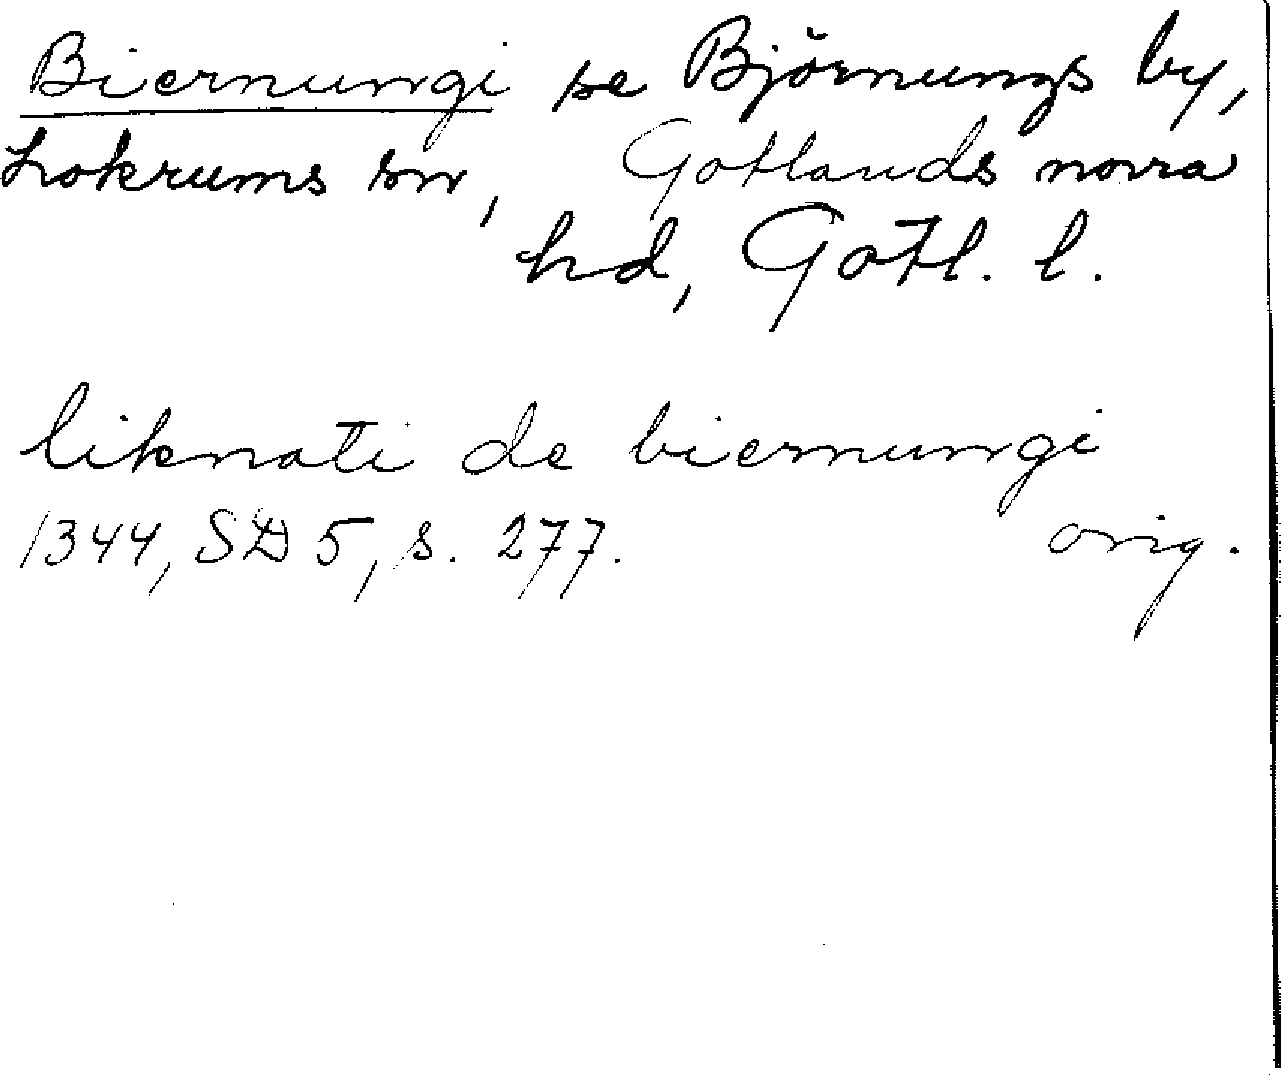 Biernungi se Björnungs by,
Lokrums sn, Gotlands norra
hd, Gotl. l.
liknati de biernungi
1344, SD 5, s. 277. orig.